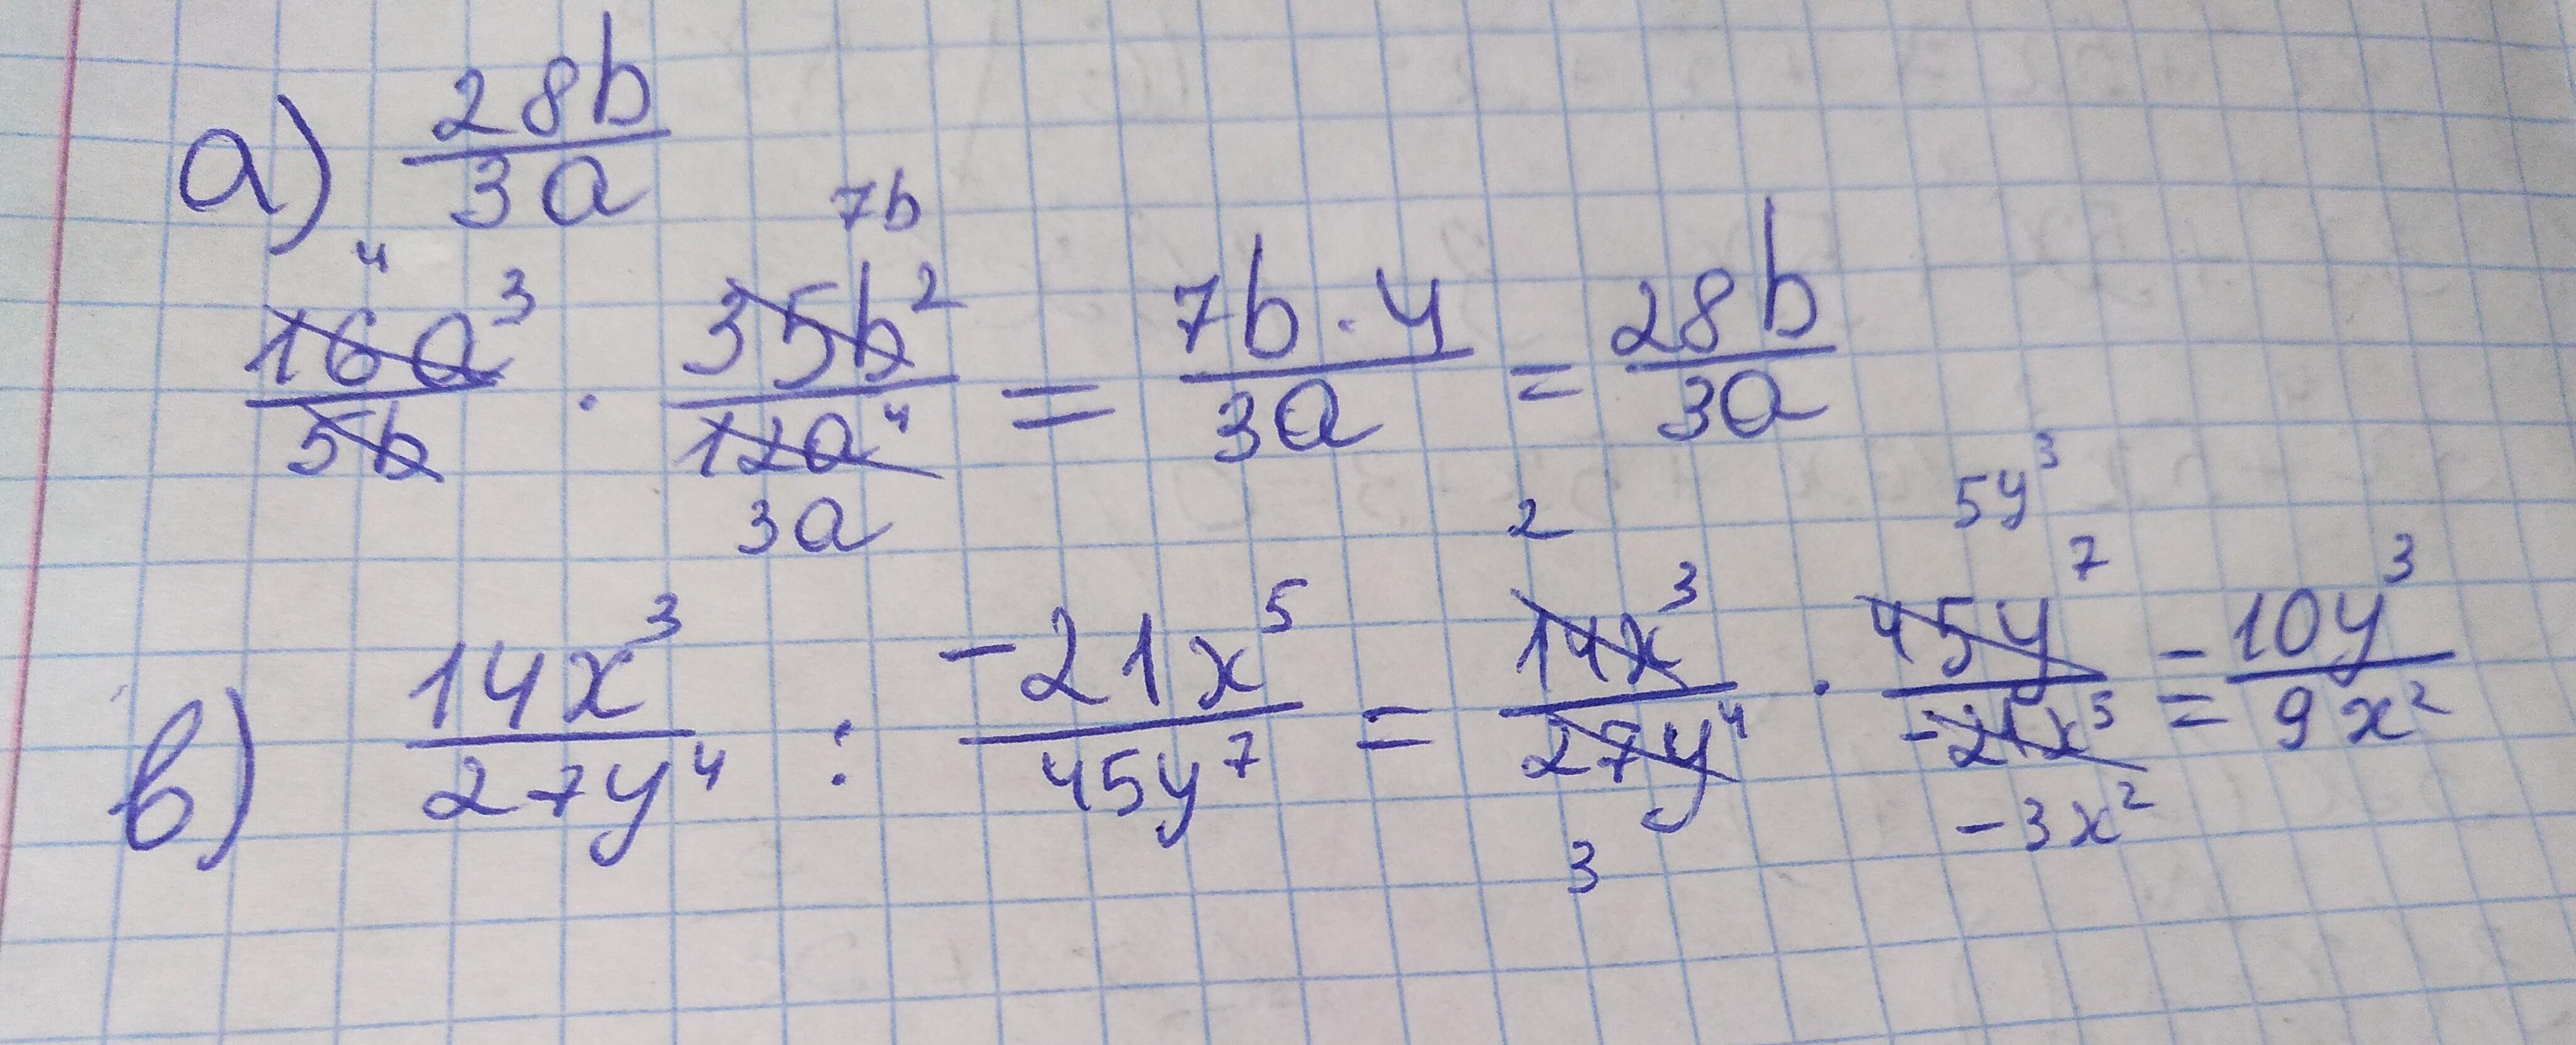 а) 28b/3a
16a³/5b · 35b²/12a⁴ = 7b·4/3a = 28b/3a
4 7b 3a
в) 14x³/27y⁴ : -21x⁵/45y⁷ = 14x³/27y⁴ · 45y⁷/-21x⁵ = 10y³/9x²
2 5y³ 3 -3x²